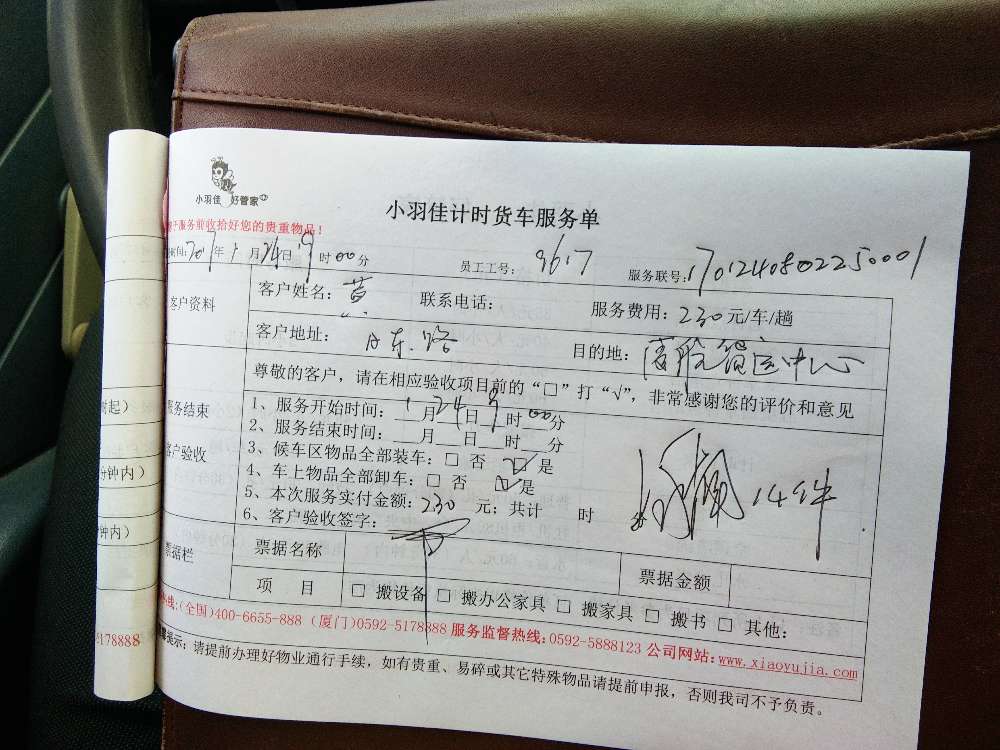 小羽佳 好管家
小羽佳计时货车服务单
服务前收拾好您的贵重物品！
2017年1月24日9时00分 员工工号：9617 服务联号：1701240802250001
客户资料 客户姓名：黄 联系电话： 服务费用：230元/车/趟
客户地址： 目的地：中心
尊敬的客户，请在相应验收项目前的“□”打“√”，非常感谢您的评价和意见
服务结束
1、服务开始时间：1月24日9时00分
2、服务结束时间：__月__日__时__分
客户验收
3、候车区物品全部装车：□ 否 ☑是
4、车上物品全部卸车：□ 否 ☑是
5、本次服务实付金额：230 元；共计 时 分
14件
6、客户验收签字：
票据栏 票据名称 票据金额
项 目 □ 搬设备 □ 搬办公家具 □ 搬家具 □ 搬书 □ 其他：
热线：(全国)400-6655-888 (厦门)0592-5178888 服务监督热线：0592-5888123 公司网站：www.xiaoyujia.com
提示：请提前办理好物业通行手续，如有贵重、易碎或其它特殊物品请提前申报，否则我司不予负责。
起）
分钟内）
钟内）
5178888